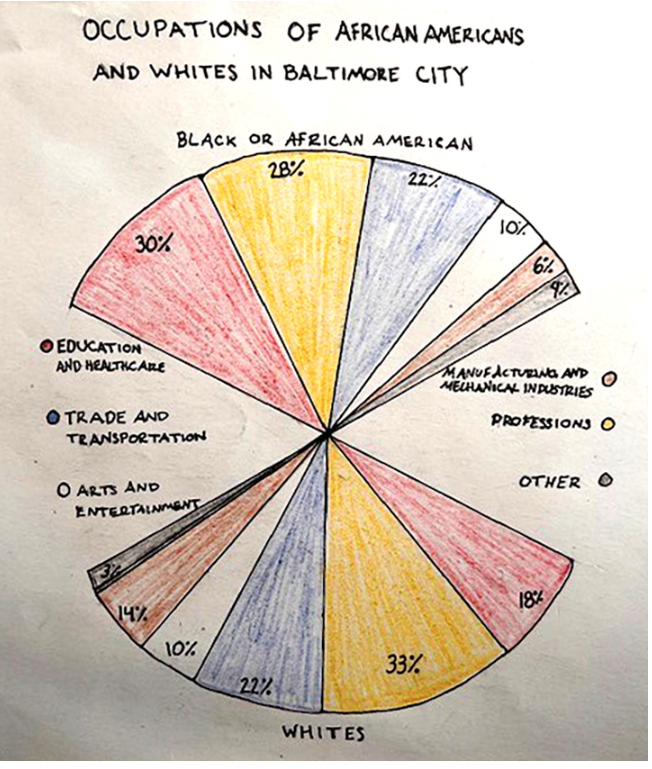 OCCUPATIONS OF AFRICAN AMERICANS
AND WHITES IN BALTIMORE CITY
BLACK OR AFRICAN AMERICAN
30%
28%
22%
10%
6%
4%
EDUCATION
AND HEALTHCARE
TRADE AND
TRANSPORTATION
ARTS AND
ENTERTAINMENT
MANUFACTURING AND
MECHANICAL INDUSTRIES
PROFESSIONS
OTHER
3%
14%
10%
22%
33%
18%
WHITES